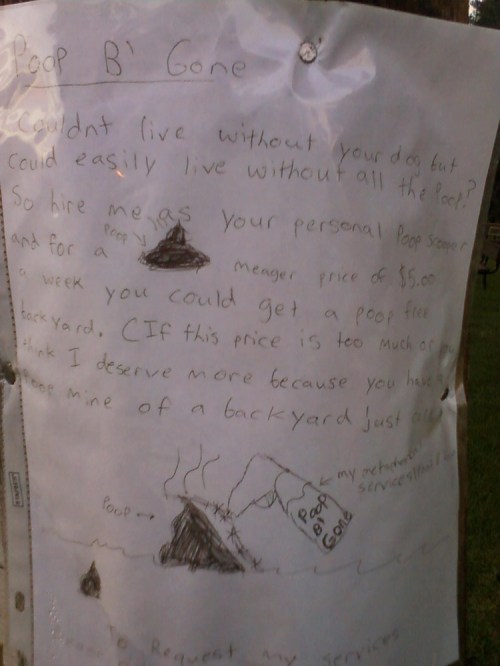 Poop B' Gone
Couldnt live without your dog but
could easily live without all the Poop?
So hire me as your personal Poop Scooper
Poop
and for a meager price of $5.00
a week you could get a poop free
backyard. (If this price is too much or
think I deserve more because you have a
mine of a backyard just
Poop
my
Poop
B'
Gone
To Request my services